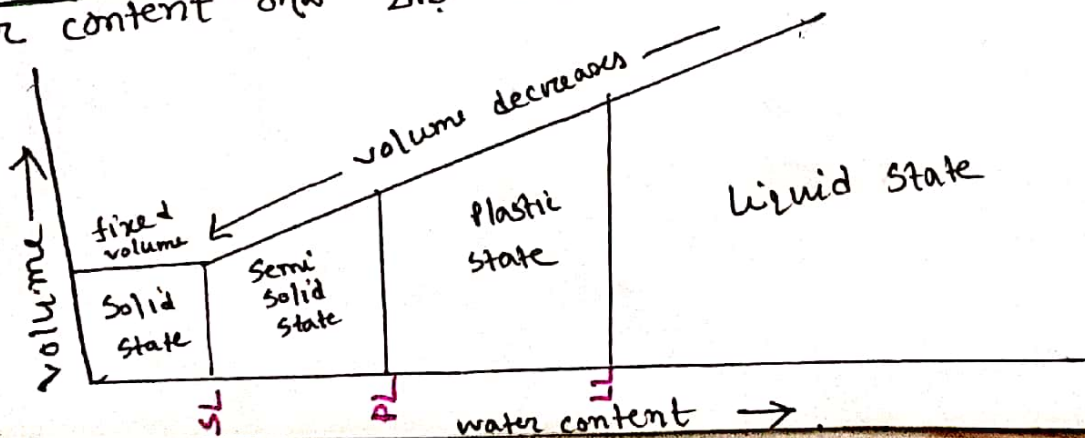 content
volume decreases
fixed
volume
Solid
State
Semi
Solid
State
Plastic
state
Liquid State
volume
SL
PL
LL
water content